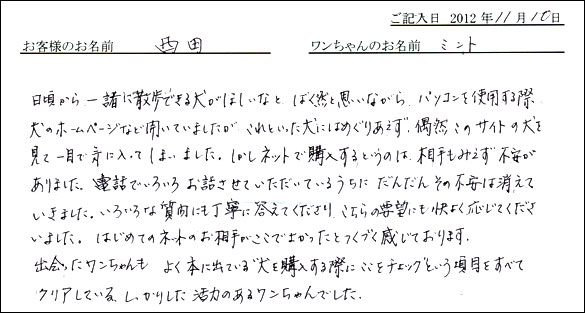 ご記入日 2012 年 11 月 10 日
お客様のお名前 西田 ワンちゃんのお名前 ミント
日頃から一諸に散歩できる犬がほしいなと ばく然と思いながら、パソコンを使用する際
犬のホームページなど開いていましたが これといった犬にはめぐりあえず、偶然このサイトの犬を
見て一目で気に入ってしまいました。しかしネットで購入するというのは、相手もみえず不安が
ありました。電話でいろいろお話させていただいているうちに だんだんその不安は消えて
いきました。いろいろな質問にも丁寧に答えてくださり、こちらの要望にも快よく応じてくださ
いました。はじめてのネットのお相手がここでよかったとつくづく感じております。
出会ったワンちゃんも よく本に出ている犬を購入する際にここをチェックという項目をすべて
クリアしている、しっかりした活力のあるワンちゃんでした。